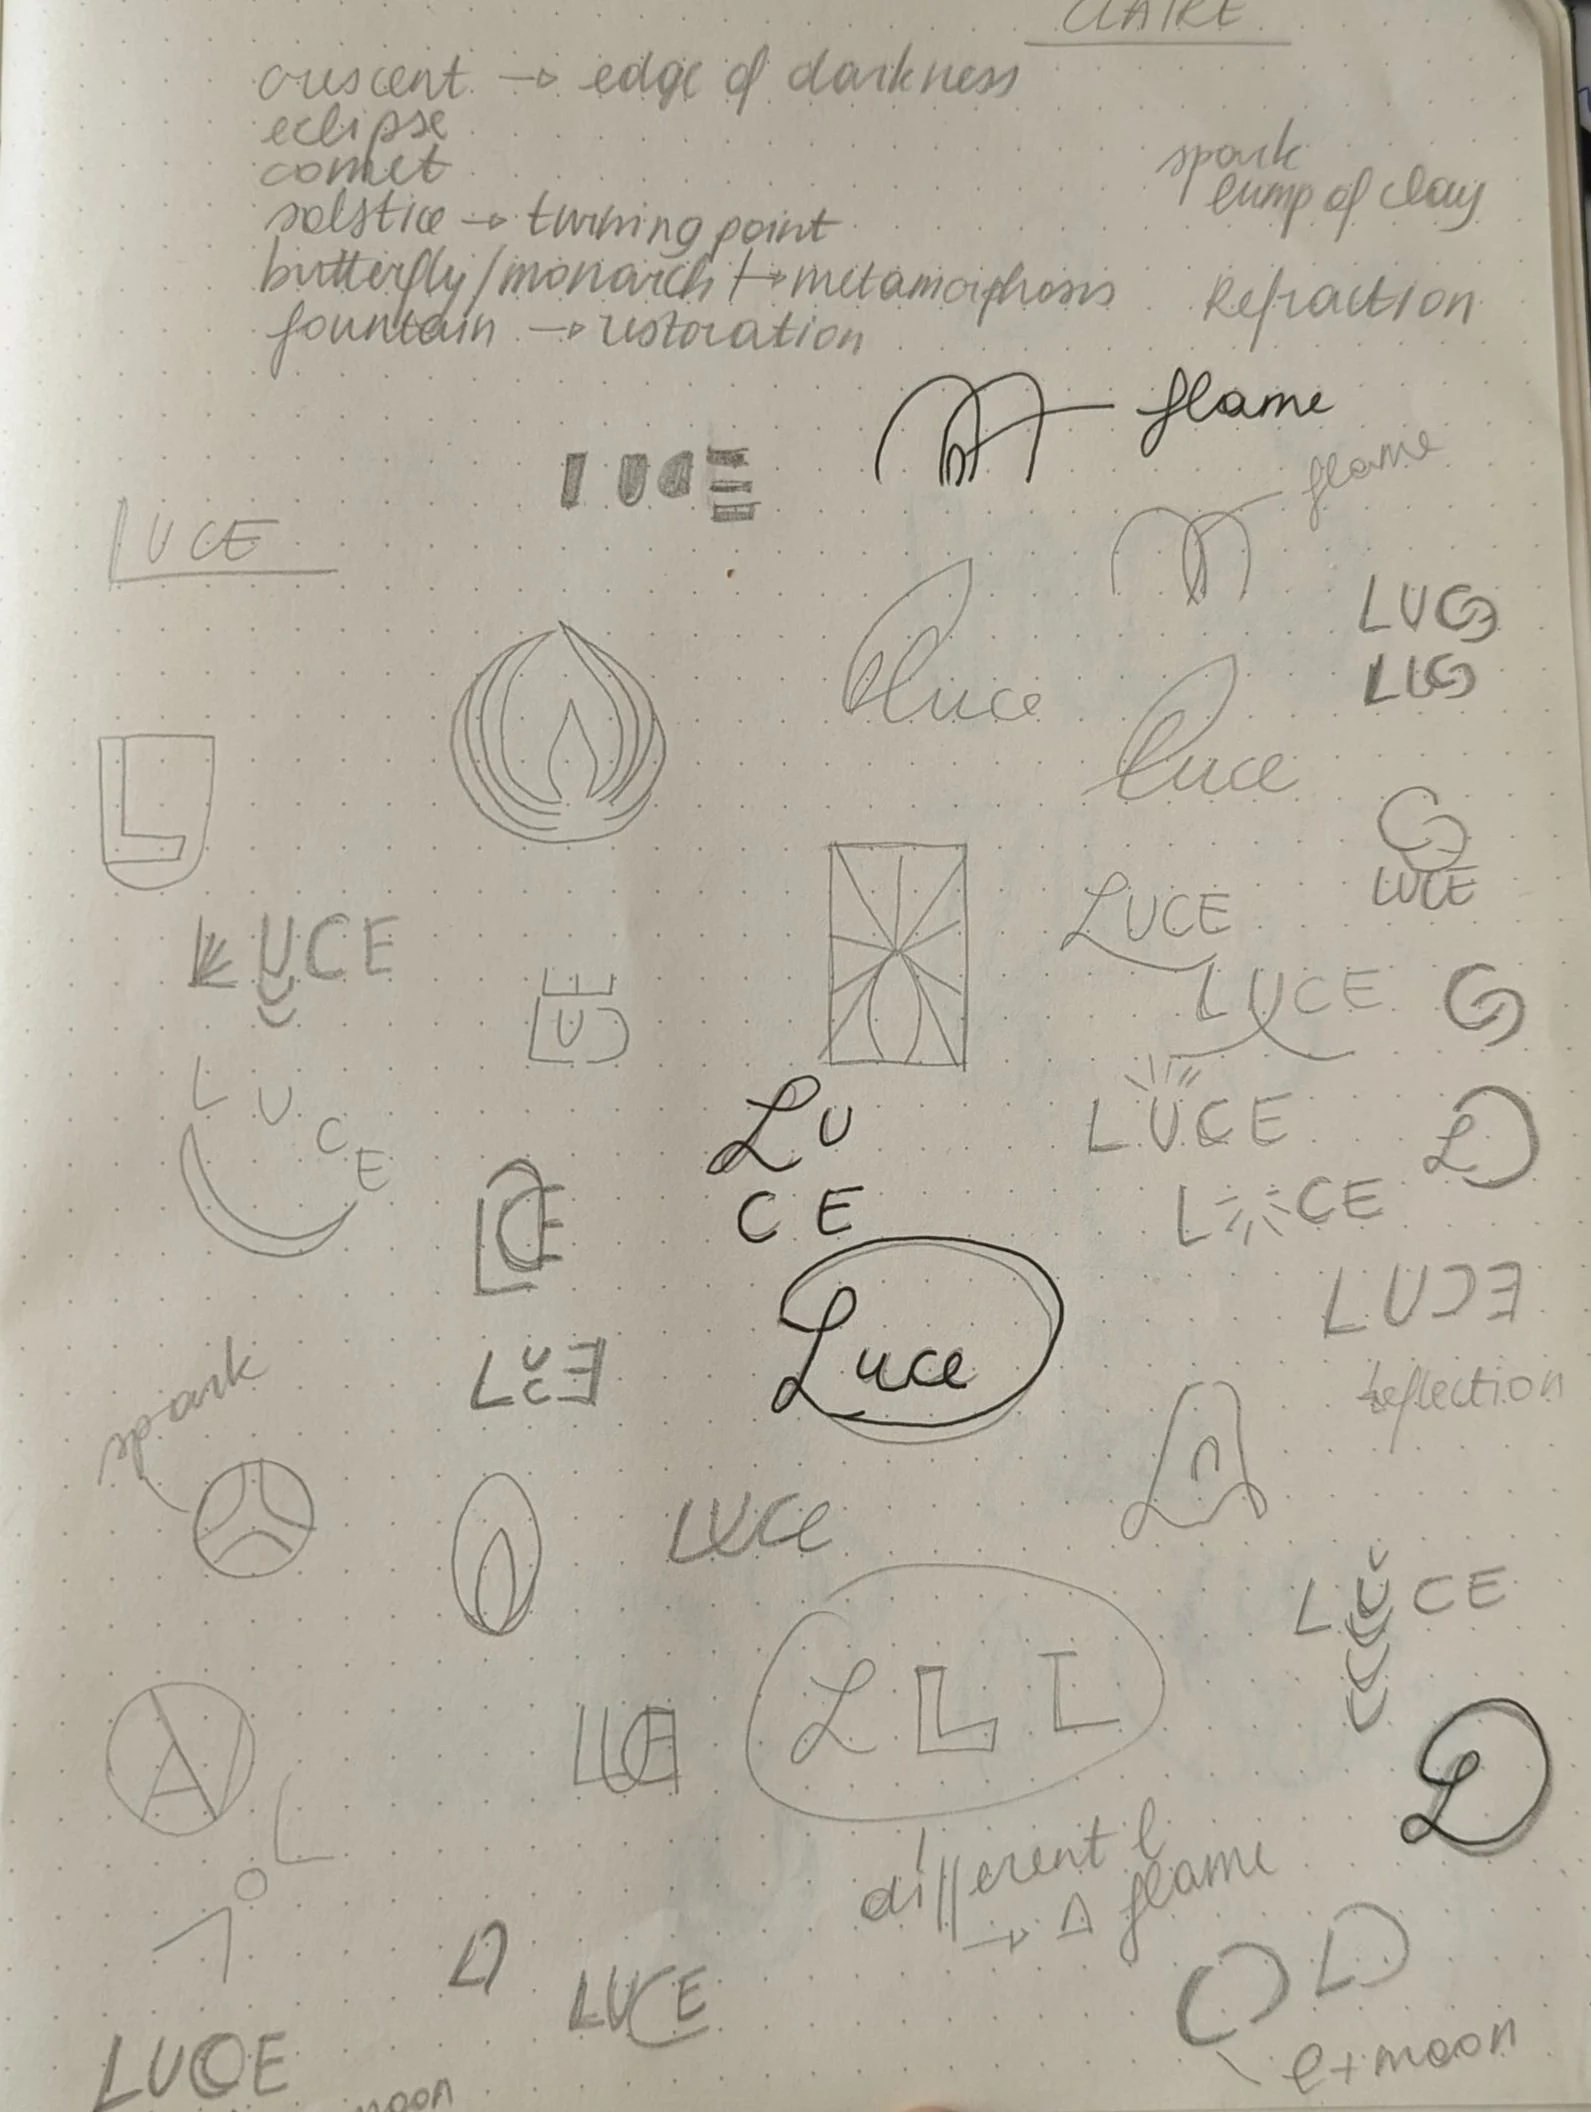 CLAIRE
crescent → edge of darkness
eclipse
comet
solstice → turning point
butterfly/monarch → metamorphosis
fountain → restoration
spark
lump of clay
Refraction
flame
flame
LUCE
LUCE
luce
luce
LUC
LUC
L
LUCE
LUCE
LUCE
LUCE
LUCE
LUCE
L
LU
CE
LUCE
L CE
LUCE
reflection
Luce
LUCE
spark
LUCE
LUCE
LUCE
L L L
L
different l
→ Δ flame
L
LUCE
LUCE
moon
l + moon